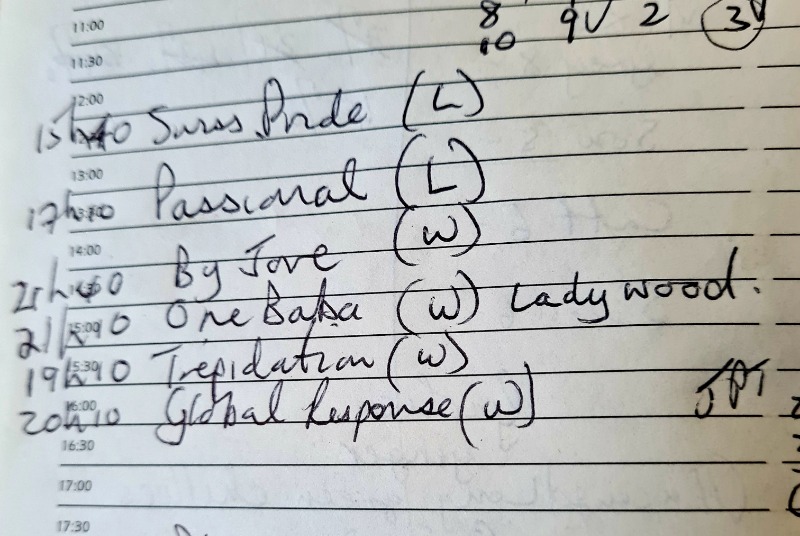 11:00
8 9√ 2 3√
10
11:30
12:00
15h40 Swiss Pride (L)
13:00
17h00 Passional (L)
14:00
By Jove (W)
15:00
21h10 One Baba (W) Ladywood.
15:30
19h10 Trepidation (W)
16:00
20h10 Global Response (W) JPT
16:30
17:00
17:30